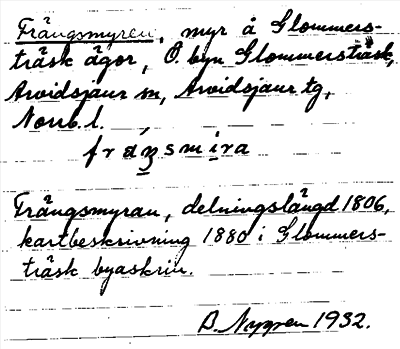 Frångsmyren, myr å Glommers-
träsk ägor, Ö. byn Glommersträsk,
Arvidsjaur sn, Arvidsjaur tg,
Norrb. l.
fråŋsmira
Frångsmyran, delningslängd 1806,
kartbeskrivning 1880 i Glommers-
träsk byaskrin.
B. Nygren 1932.